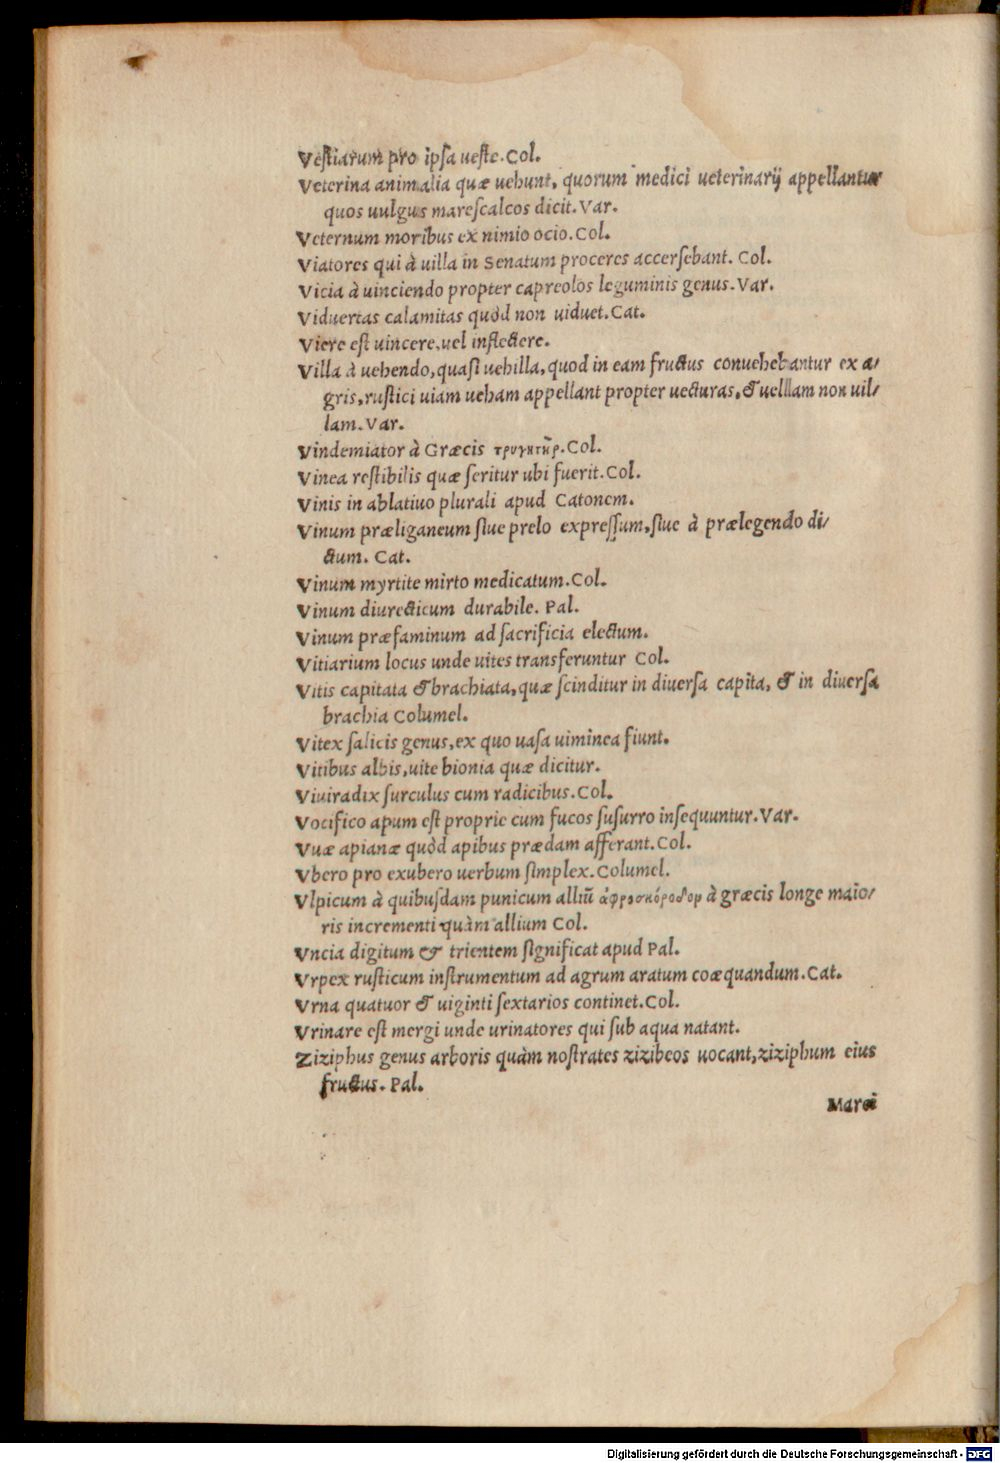 Vestiarum pro ipsa ueste. Col.
Veterina animalia quæ uehunt, quorum medici ueterinarij appellantur
quos uulgus marescalcos dicit. Var.
Veternum moribus ex nimio ocio. Col.
Viatores qui à uilla in Senatum proceres accersebant. Col.
Vicia à uinciendo propter capreolos leguminis genus. Var.
Viduertas calamitas quòd non uiduet. Cat.
Viere est uincere, uel inflectere.
Villa à uehendo, quasi uehilla, quod in eam fructus conuehebantur ex a/
gris, rustici uiam ueham appellant propter uecturas, & uellam non uil/
lam. Var.
Vindemiator à Græcis τρυγητὴρ. Col.
Vinea restibilis quæ seritur ubi fuerit. Col.
Vinis in ablatiuo plurali apud Catonem.
Vinum præliganeum siue prelo expressum, siue à prælegendo di/
ctum. Cat.
Vinum myrtite mirto medicatum. Col.
Vinum diurecticum durabile. Pal.
Vinum præfaminum ad sacrificia electum.
Vitiarium locus unde uites transferuntur Col.
Vitis capitata & brachiata, quæ scinditur in diuersa capita, & in diuersa
brachia Columel.
Vitex salicis genus, ex quo uasa uiminea fiunt.
Vitibus albis, uite bionia quæ dicitur.
Viuiradix surculus cum radicibus. Col.
Vocifico apum est proprie cum fucos susurro insequuntur. Var.
Vuæ apianæ quòd apibus prædam afferant. Col.
Vbero pro exubero uerbum simplex. Columel.
Vlpicum à quibusdam punicum alliũ ἀφροσκόροδον à græcis longe maio/
ris incrementi quàm allium Col.
Vncia digitum & trientem significat apud Pal.
Vrpex rusticum instrumentum ad agrum aratum coæquandum. Cat.
Vrna quatuor & uiginti sextarios continet. Col.
Vrinare est mergi unde urinatores qui sub aqua natant.
Ziziphus genus arboris quàm nostrates zizibeos uocant, ziziphum eius
fructus. Pal.
Marci
Digitalisierung gefördert durch die Deutsche Forschungsgemeinschaft - DFG